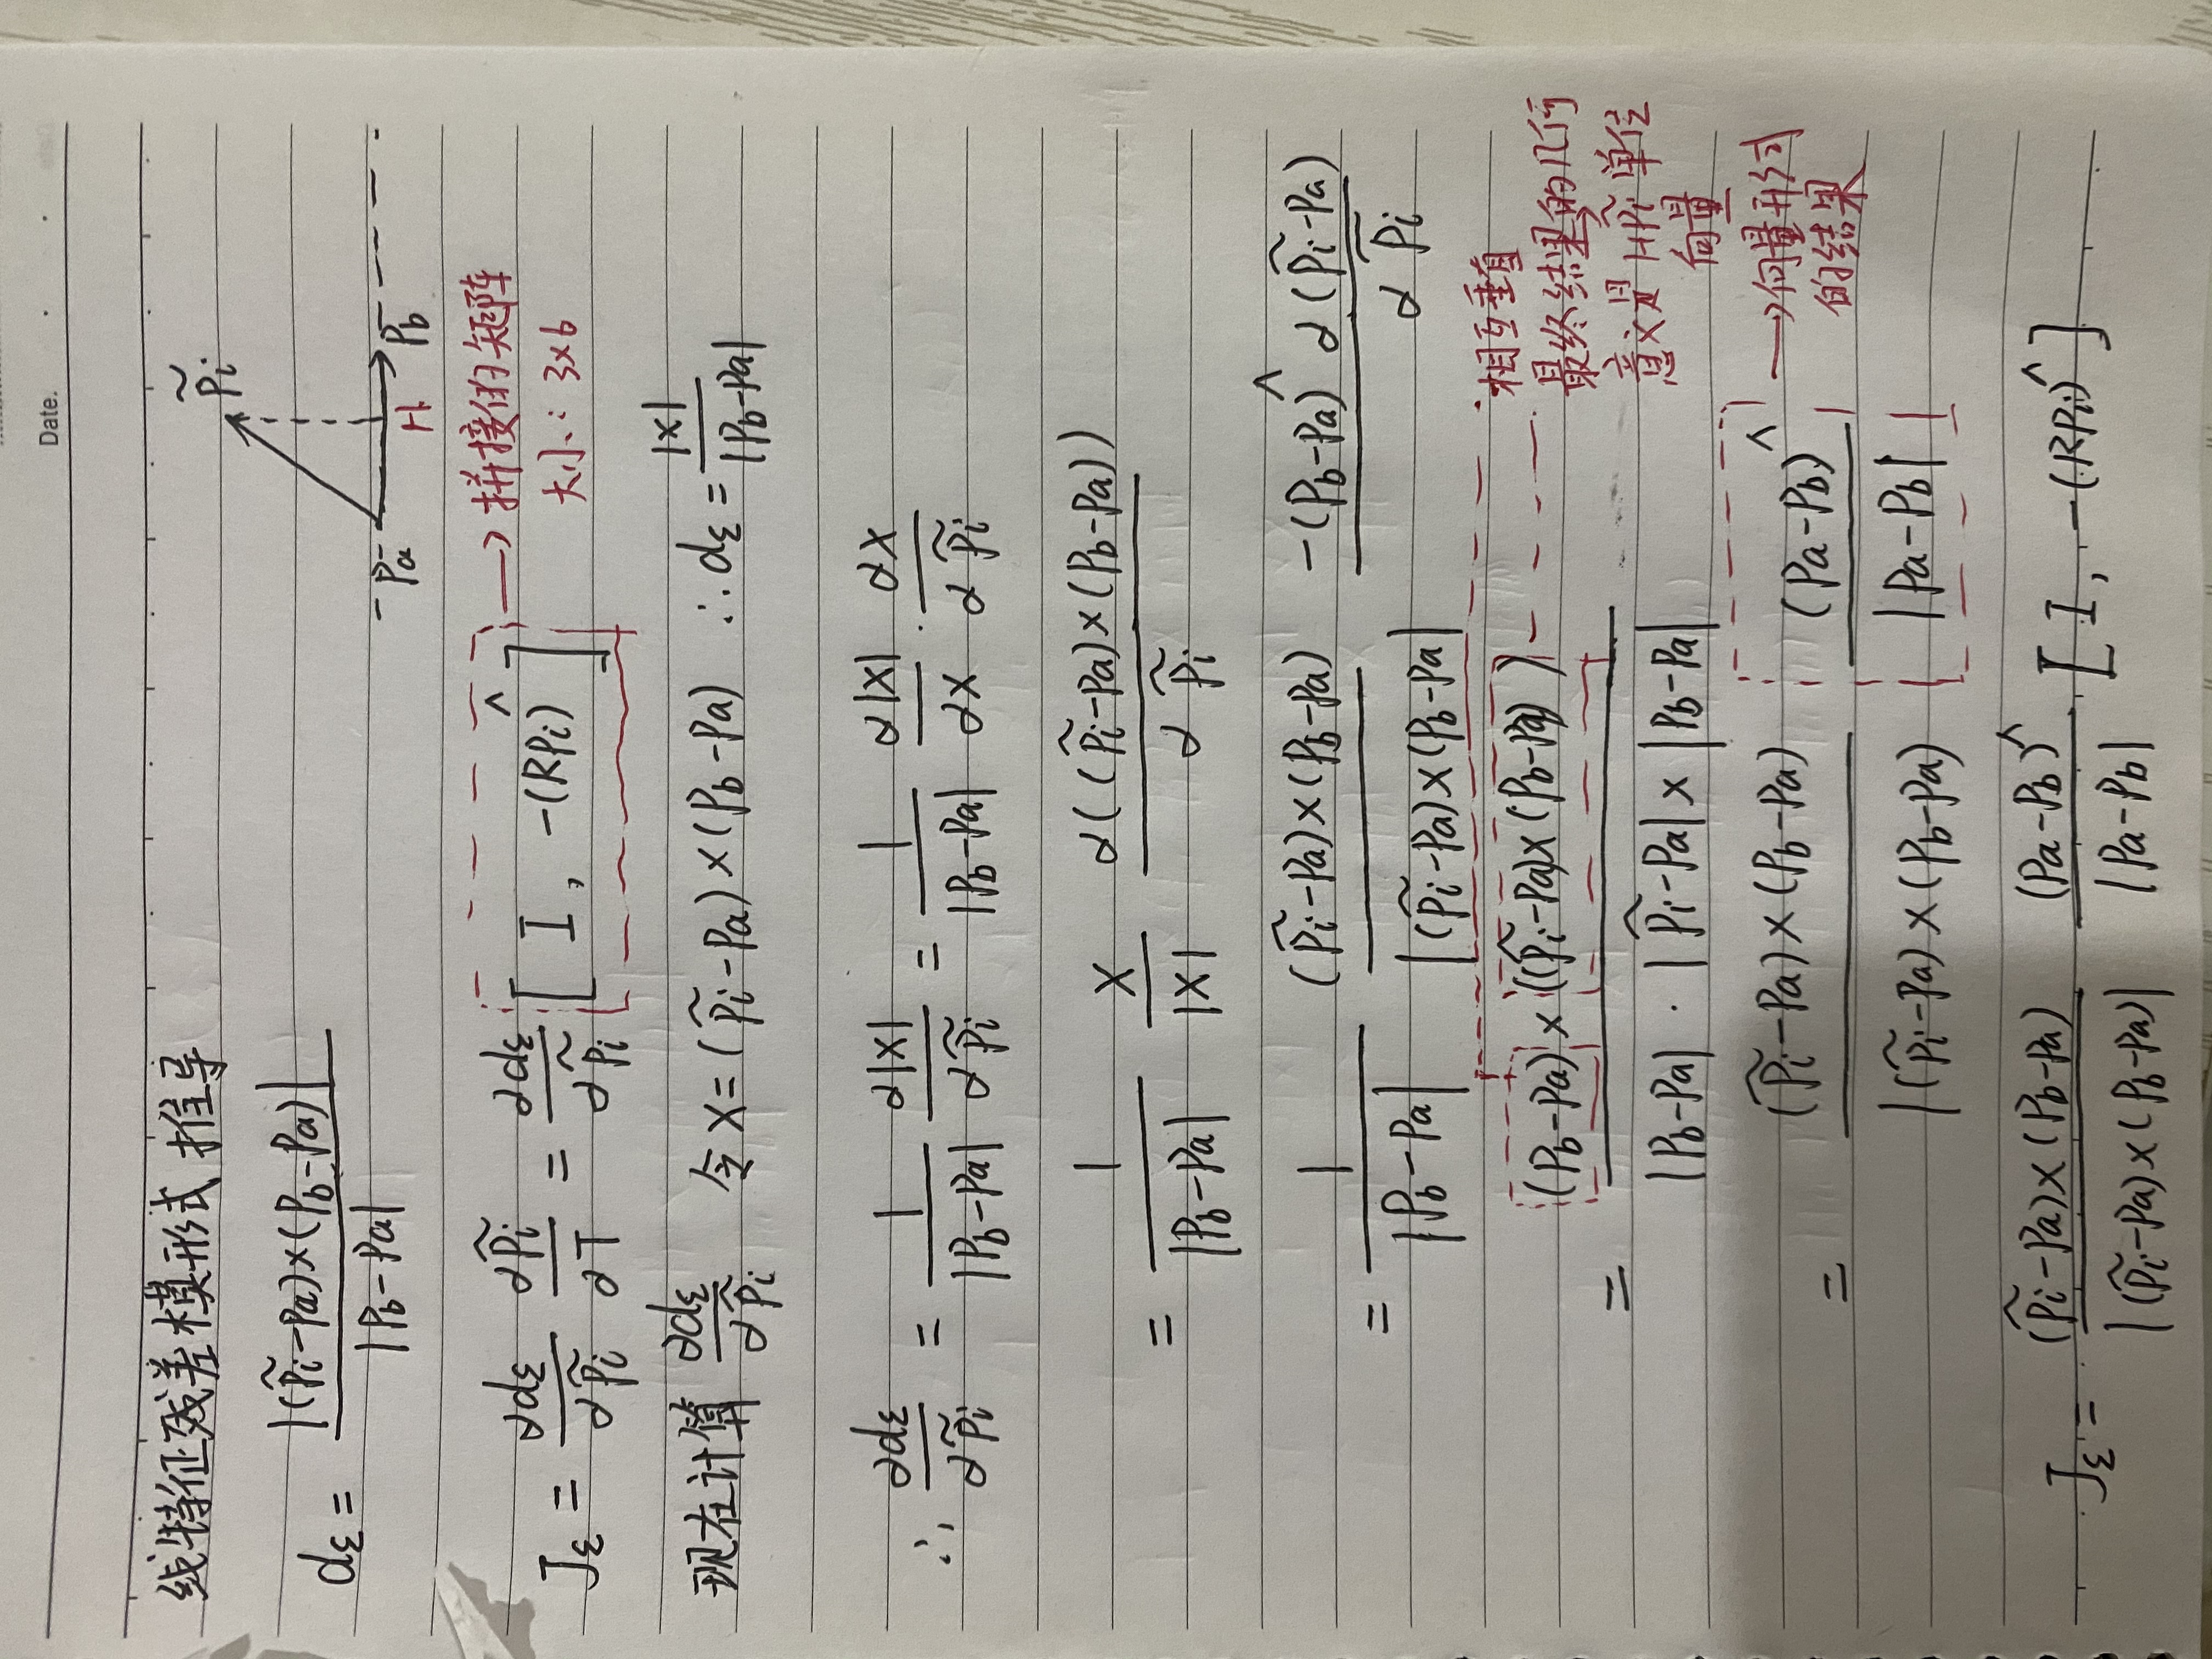 Date.
线特征残差模形式推导
dε = |(p̃i-pa)×(pb-pa)| / |pb-pa|
p̃i
pa H pb
Jε = ∂dε/∂p̃i ∂p̃i/∂T = ∂dε/∂p̃i [ I, -(Rpi)^ ] → 拼接的矩阵
大小: 3×6
现在计算 ∂dε/∂p̃i 令 X = (p̃i-pa)×(pb-pa) ∴ dε = |X| / |pb-pa|
∴ ∂dε/∂p̃i = 1/|pb-pa| ∂|X|/∂p̃i = 1/|pb-pa| ∂|X|/∂X · ∂X/∂p̃i
= 1/|pb-pa| X/|X| ∂((p̃i-pa)×(pb-pa))/∂p̃i
= 1/|pb-pa| (p̃i-pa)×(pb-pa)/|(p̃i-pa)×(pb-pa| -(pb-pa)^ ∂(p̃i-pa)/∂p̃i
= (pb-pa)×((p̃i-pa)×(pb-pa)) / |pb-pa|·|p̃i-pa|×|pb-pa|
相互垂直
最终结果的几何
意义是 Hp̃i 单位
向量
= (p̃i-pa)×(pb-pa)/|(p̃i-pa)×(pb-pa) (pa-pb)^/|pa-pb| → 向量形式
的结果
Jε = (p̃i-pa)×(pb-pa)/|(p̃i-pa)×(pb-pa)| (pa-pb)^/|pa-pb| [ I, -(Rpi)^ ]